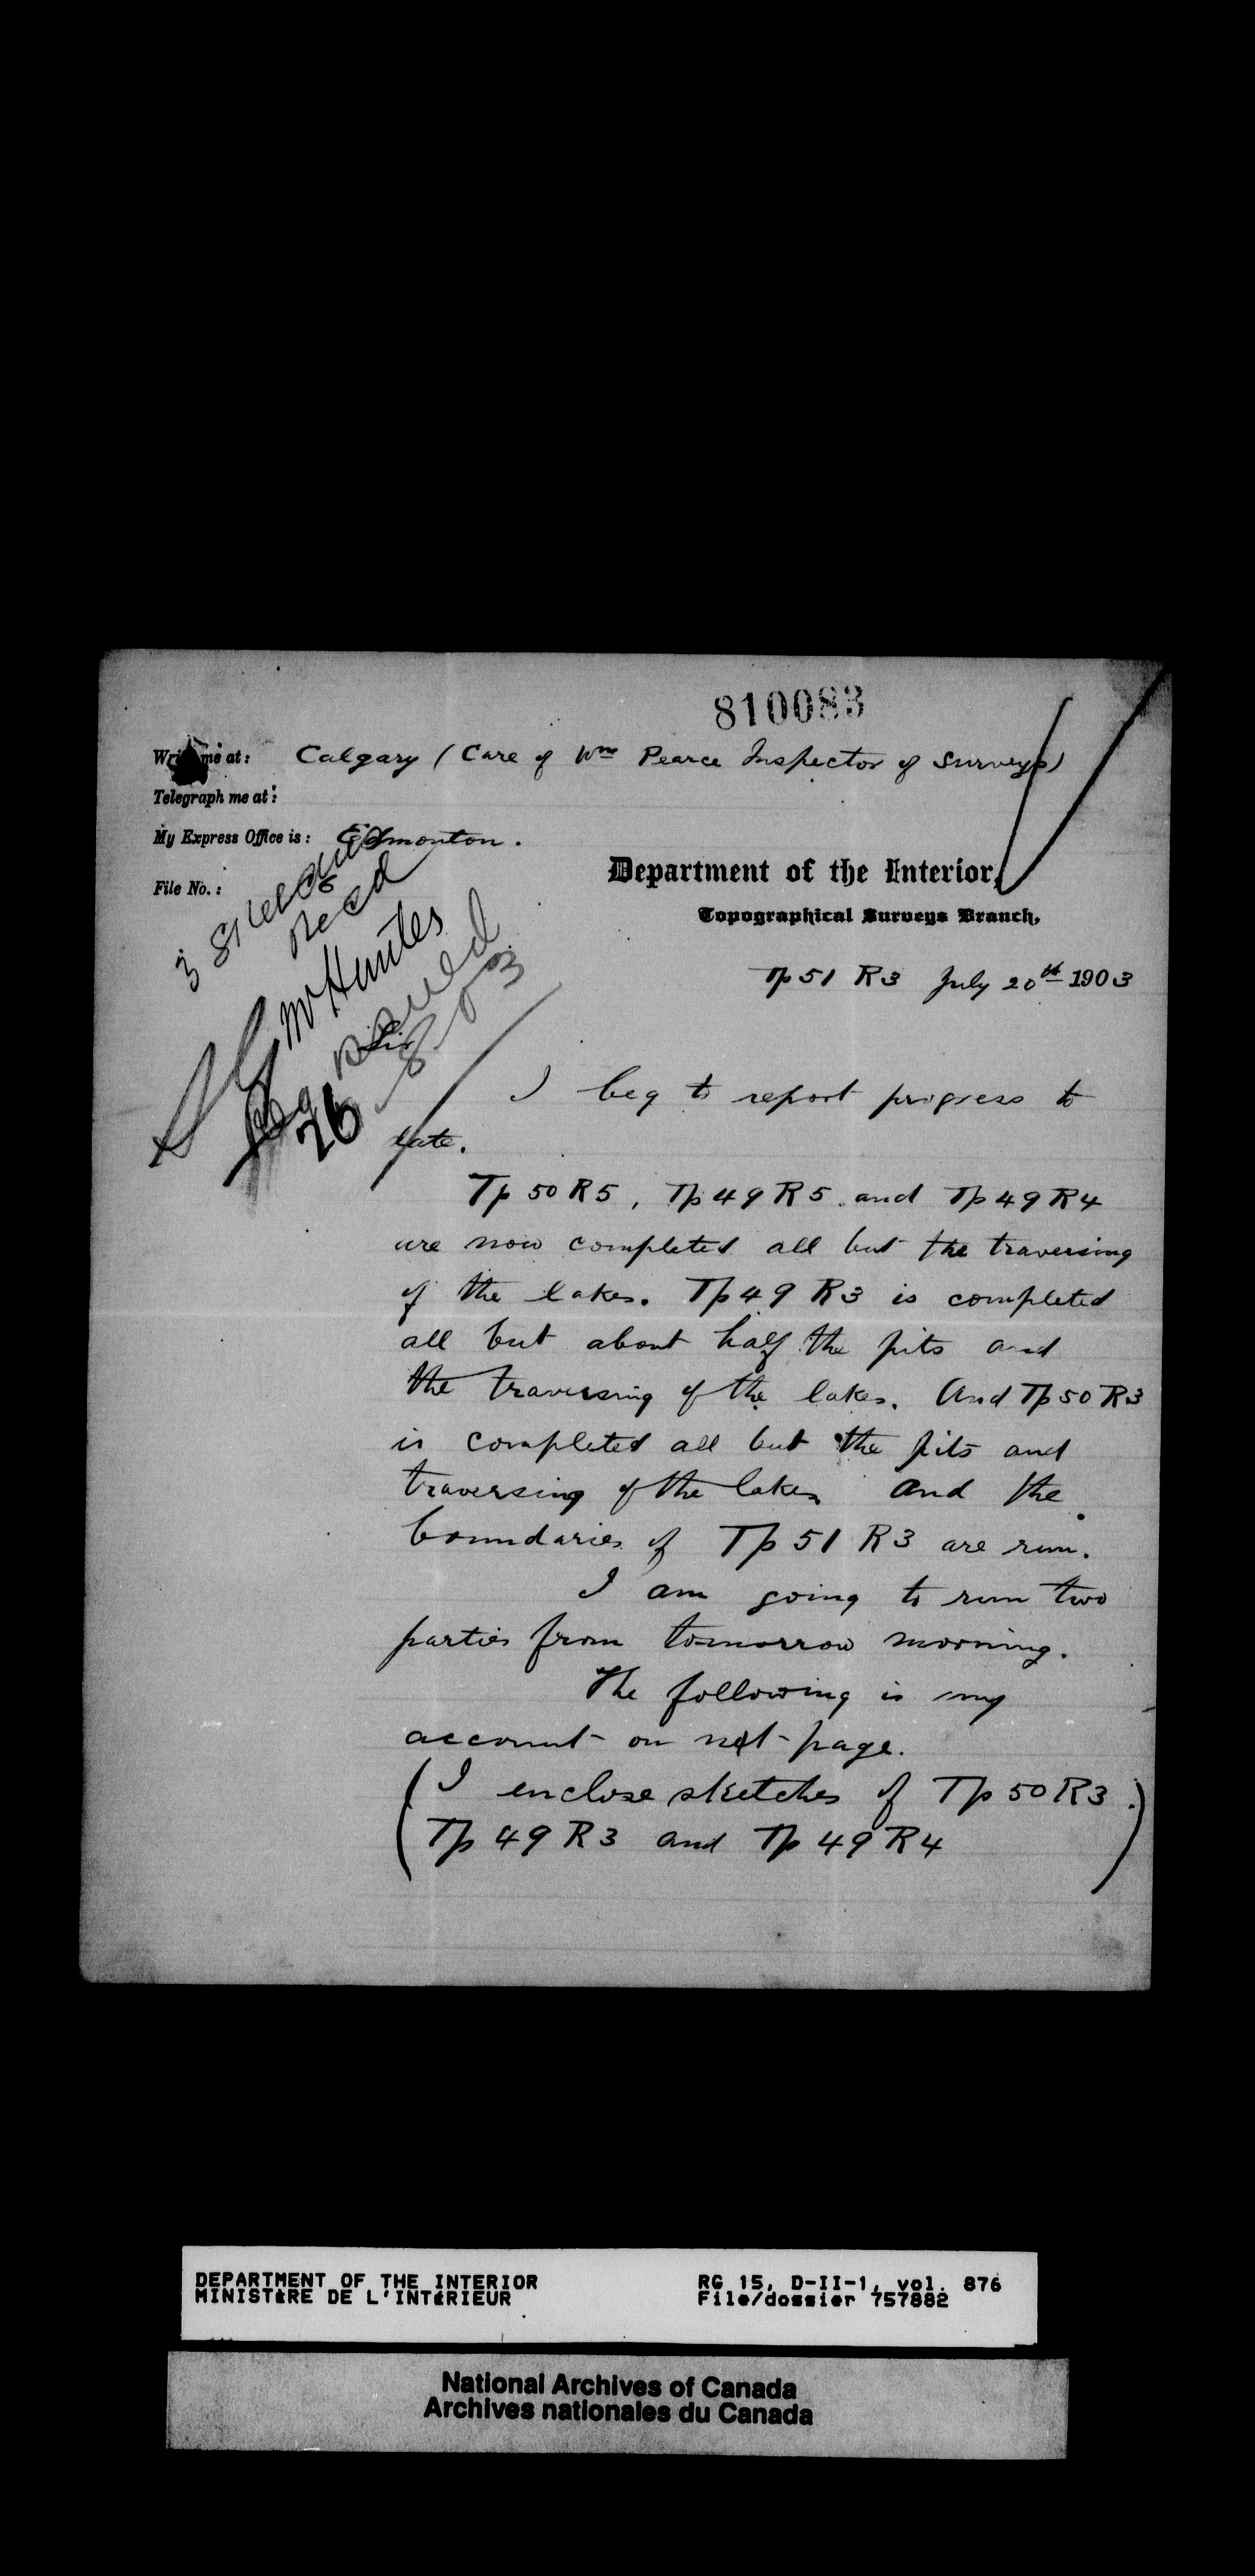 810083
Write me at: Calgary (Care of Wm Pearce Inspector of Surveys)
Telegraph me at:
My Express Office is: Edmonton.
File No.:
Department of the Interior,
Topographical Surveys Branch,
3 sketches
recd
Mr Hunter
Tp 51 R3 July 20th 1903
Sir
26
I beg to report progress to
date.
Tp 50 R5, Tp 49 R5 and Tp 49 R4
are now completed all but the traversing
of the lakes. Tp 49 R3 is completed
all but about half the pits and
the traversing of the lakes. And Tp 50 R3
is completed all but the pits and
traversing of the lakes and the
boundaries of Tp 51 R3 are run.
I am going to run two
parties from tomorrow morning.
The following is my
account on next page.
(I enclose sketches of Tp 50 R3.
Tp 49 R3 and Tp 49 R4)
DEPARTMENT OF THE INTERIOR
MINISTÈRE DE L'INTÉRIEUR
RG 15, D-II-1, vol. 876
File/dossier 757882
National Archives of Canada
Archives nationales du Canada